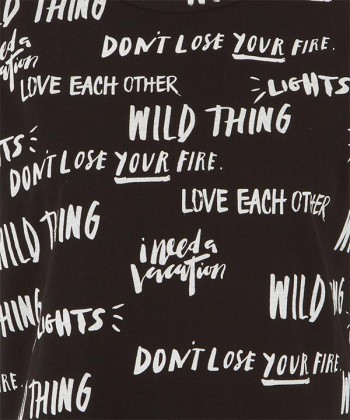 WILD THING
i need a
vacation
DON'T LOSE YOUR FIRE.
LOVE EACH OTHER
LIGHTS
WILD THING
LIGHTS
DON'T LOSE YOUR FIRE.
LOVE EACH OTHER
WILD THING
i need a
vacation
WILD THING
THING
LIGHTS
DON'T LOSE YOUR FIRE.
FIRE.
THING